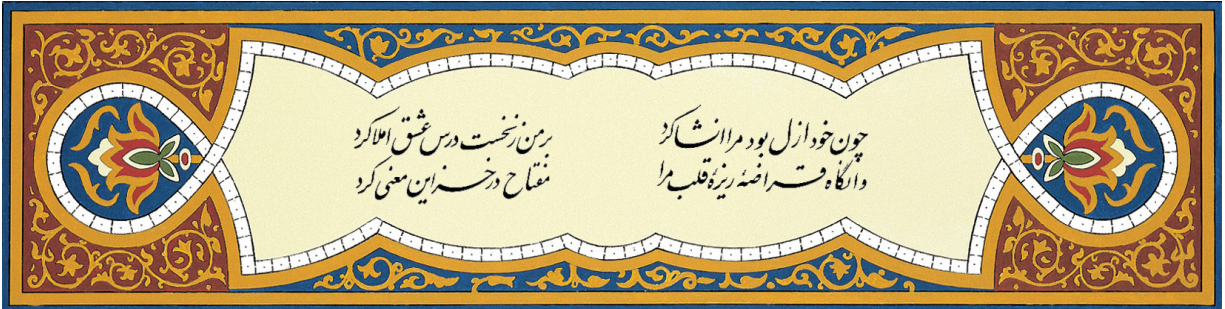 چون خود ازل بود مرا انشا کرد بر من ز نخست درس عشق املا کرد
وانگاه قراضهٔ ریزهٔ قلب مرا مفتاح در خزاین معنی کرد